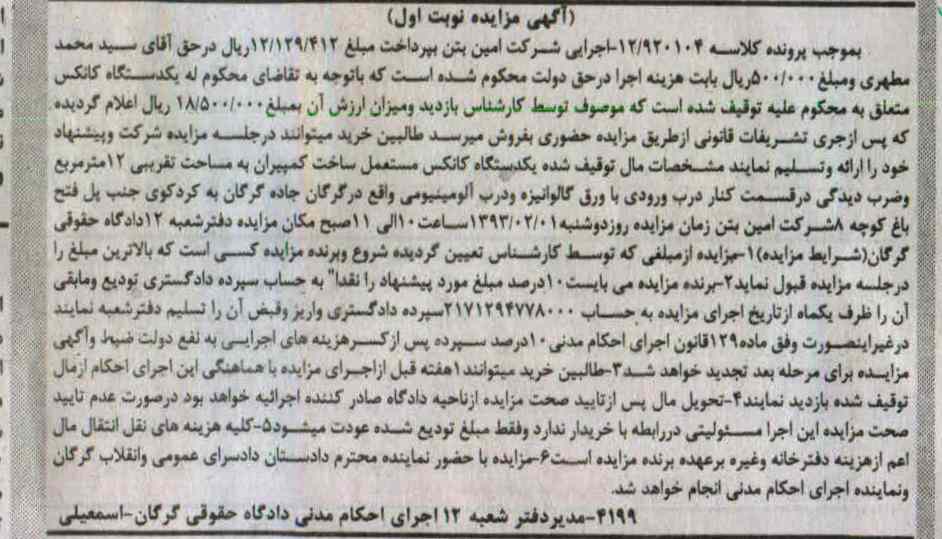 (آگهی مزایده نوبت اول)
بموجب پرونده کلاسه ۱۲/۹۲۰۱۰۴-اجرایی شرکت امین بتن بپرداخت مبلغ ۱۲/۱۲۹/۴۱۲ریال درحق آقای سید محمد
مطهری ومبلغ۵۰۰/۰۰۰ریال بابت هزینه اجرا درحق دولت محکوم شده است که باتوجه به تقاضای محکوم له یکدستگاه کانکس
متعلق به محکوم علیه توقیف شده است که موصوف توسط کارشناس بازدید ومیزان ارزش آن بمبلغ۱۸/۵۰۰/۰۰۰ ریال اعلام گردیده
که پس ازجری تشریفات قانونی ازطریق مزایده حضوری بفروش میرسد طالبین خرید میتوانند درجلسه مزایده شرکت وپیشنهاد
خود را ارائه وتسلیم نمایند مشخصات مال توقیف شده یکدستگاه کانکس مستعمل ساخت کمپیران به مساحت تقریبی ۱۲مترمربع
وضرب دیدگی درقسمت کنار درب ورودی با ورق گالوانیزه ودرب آلومینیومی واقع درگرگان جاده گرگان به کردکوی جنب پل فتح
باغ کوچه ۸شرکت امین بتن زمان مزایده روزدوشنبه۱۳۹۳/۰۲/۰۱ساعت۱۰الی ۱۱صبح مکان مزایده دفترشعبه ۱۲دادگاه حقوقی
گرگان(شرایط مزایده)۱-مزایده ازمبلغی که توسط کارشناس تعیین گردیده شروع وبرنده مزایده کسی است که بالاترین مبلغ را
درجلسه مزایده قبول نماید۲-برنده مزایده می بایست۱۰درصد مبلغ مورد پیشنهاد را نقدا" به حساب سپرده دادگستری تودیع ومابقی
آن را ظرف یکماه ازتاریخ اجرای مزایده به حساب ۲۱۷۱۲۹۴۷۷۸۰۰۰سپرده دادگستری واریز وقبض آن را تسلیم دفترشعبه نمایند
درغیراینصورت وفق ماده۱۲۹قانون اجرای احکام مدنی۱۰درصد سپرده پس ازکسرهزینه های اجرایی به نفع دولت ضبط وآگهی
مزایده برای مرحله بعد تجدید خواهد شد۳-طالبین خرید میتوانند۱هفته قبل ازاجرای مزایده با هماهنگی این اجرای احکام ازمال
توقیف شده بازدید نمایند۴-تحویل مال پس ازتایید صحت مزایده ازناحیه دادگاه صادر کننده اجرائیه خواهد بود درصورت عدم تایید
صحت مزایده این اجرا مسئولیتی دررابطه با خریدار ندارد وفقط مبلغ تودیع شده عودت میشود۵-کلیه هزینه های نقل انتقال مال
اعم ازهزینه دفترخانه وغیره برعهده برنده مزایده است۶-مزایده با حضور نماینده محترم دادستان دادسرای عمومی وانقلاب گرگان
ونماینده اجرای احکام مدنی انجام خواهد شد.
۴۱۹۹-مدیردفتر شعبه ۱۲ اجرای احکام مدنی دادگاه حقوقی گرگان-اسمعیلی